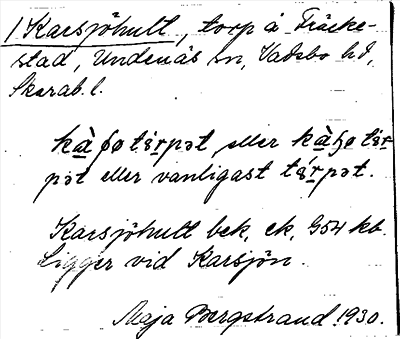 1 Karsjöhult, torp å Fräcke-
stad, Undenäs sn, Vadsbo hd,
Skarab. l.
kàʂøtɛ́rpət eller kàʂøtɛ́r
pət eller vanligast tɛ́rpət.
Karsjöhult bek, ek, G54 kb.
Ligger vid Karsjön.
Maja Bergstrand 1930.